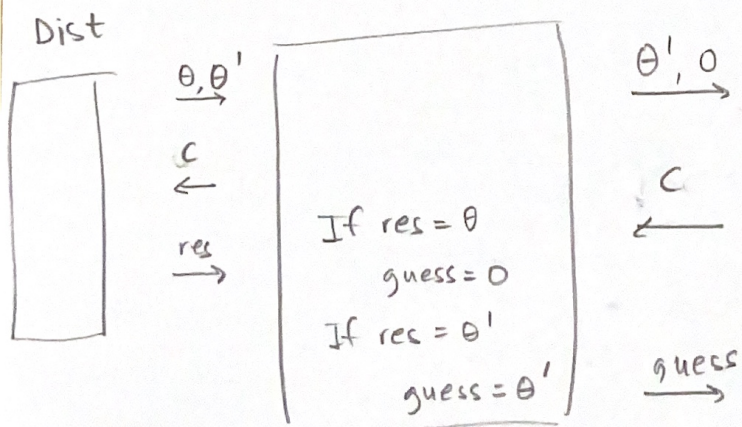 Dist
θ, θ'
C
res
If res = θ
guess = 0
If res = θ'
guess = θ'
θ', 0
C
guess